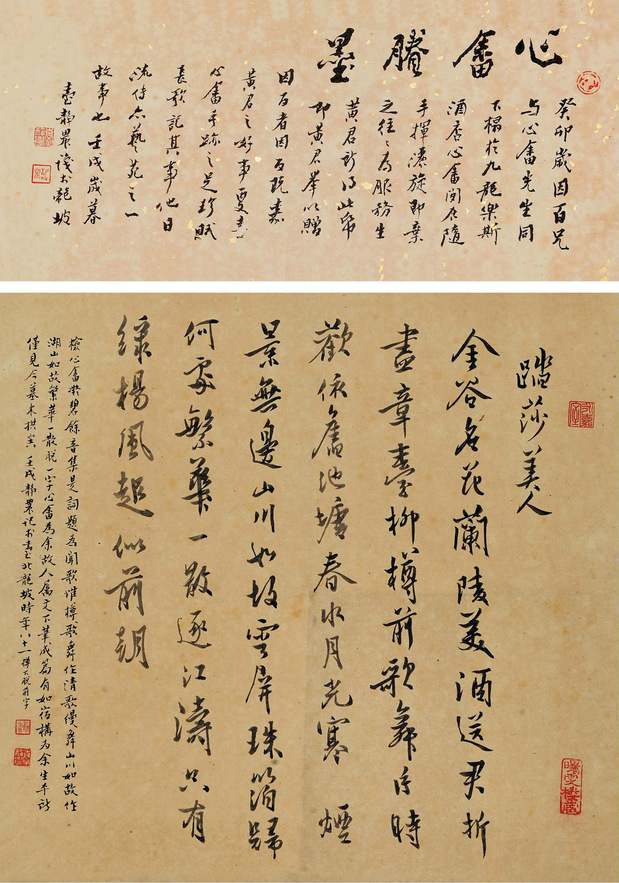 心畬賸墨
癸卯歲因百兄
与心畬先生同
下榻於九龍樂斯
酒店心畬閒居隨
手揮灑旋即棄
之往々為服務生
黃君所得此幀
即黃君舉以贈
因百者因百既嘉
黃君之好事更喜
心畬手跡之足珍賦
長歌記其事他日
流傳亦藝苑之一
故事也壬戌歲暮
臺靜農識於龍坡
踏莎美人
金谷名花蘭陵美酒送君折
盡章臺柳樽前歌舞片時
歡依舊池塘春水月光寒煙
景無邊山川如故雲屏珠箔歸
何處繁華一散逐江濤只有
綠楊風起似前朝
檢心畬凝碧餘音集是詞題為聞歌惟樽歌舞作清歌慢舞山川如故作
湖山如故繁華一散脫一字心畬為余故人屬文下筆成篇有如宿構為余生平所
僅見今墓木拱矣壬戌靜農記於臺北龍坡時年八十一樽下脫前字